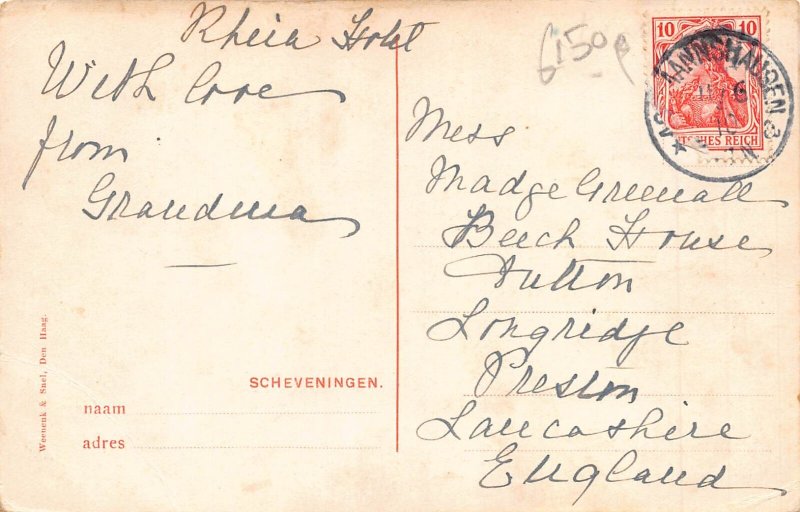 Rhein Hotel
With love
from
Grandma
Weenenk & Snel, Den Haag.
SCHEVENINGEN.
naam
adres
10 10
REICH
Miss
Madge Greenall
Beech House
Dutton
Longridge
Preston
Lancashire
England